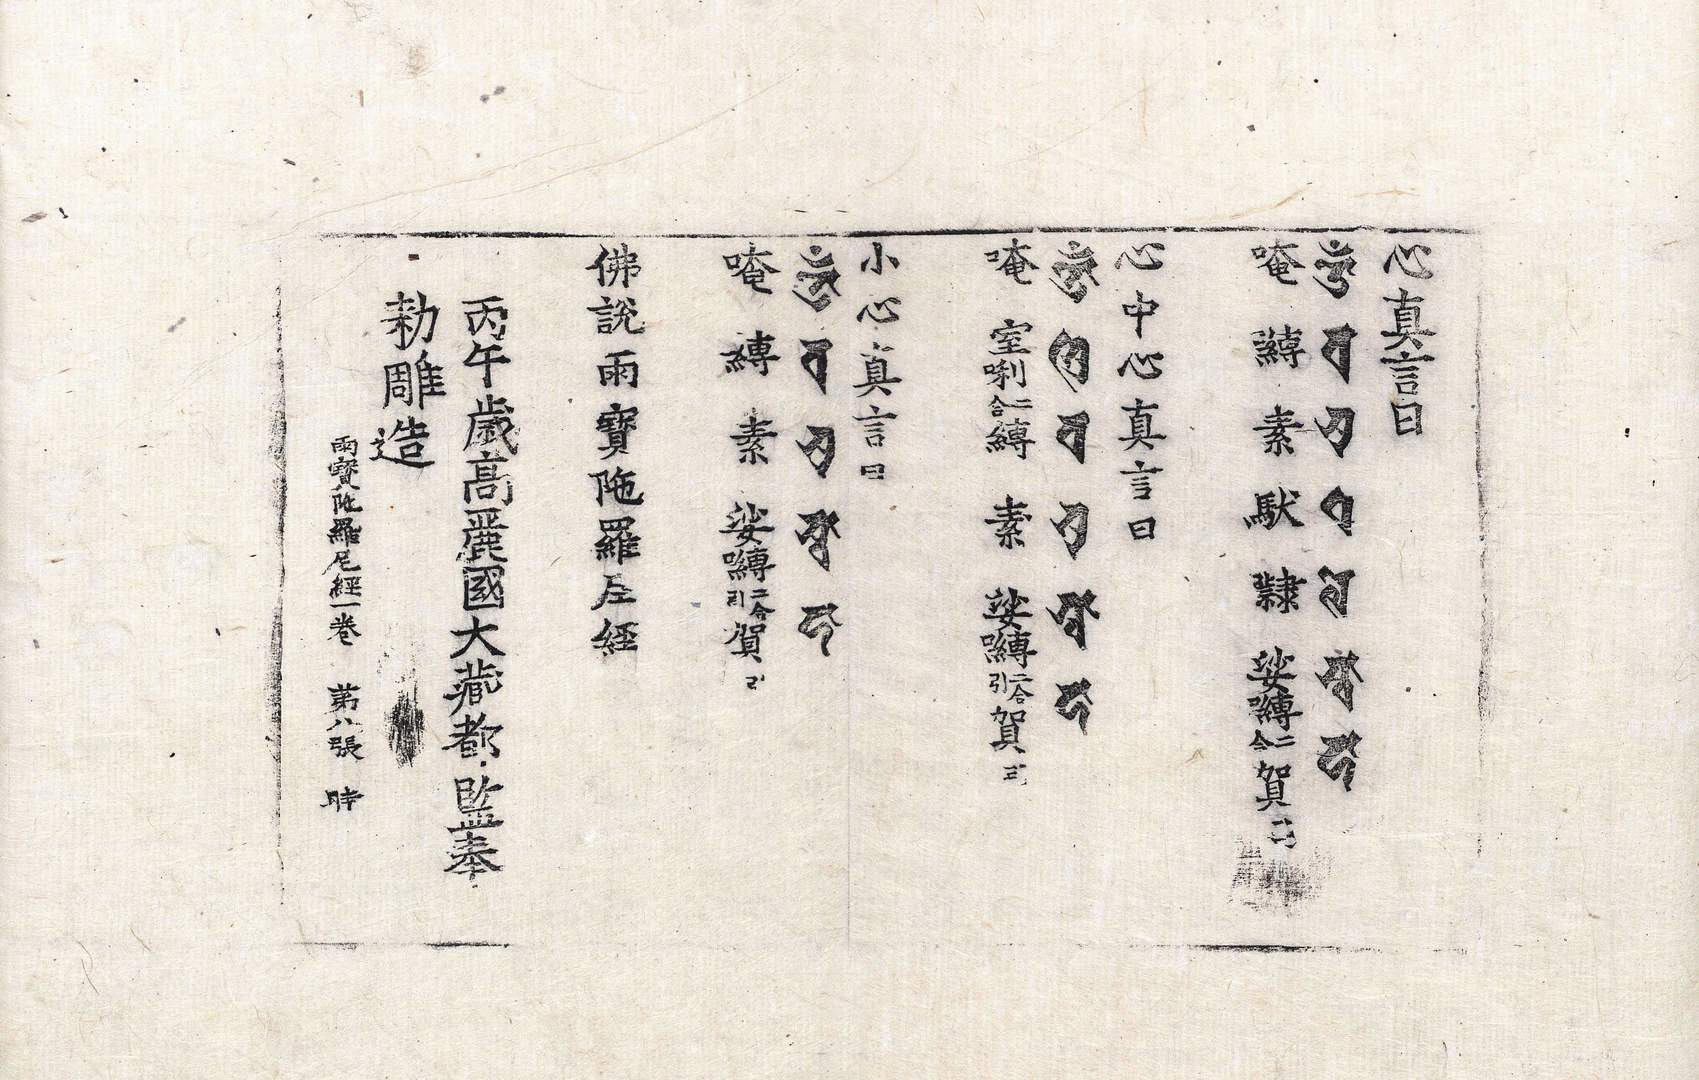 心真言曰
𑖌𑖼 𑖪 𑖭𑖲 𑖠 𑖨𑖸 𑖭𑖿𑖪𑖯 𑖮𑖯
唵 嚩 素 馱 隸 娑嚩二合賀
心中心真言曰
𑖌𑖼 𑖫𑖿𑖨𑖱 𑖪 𑖭𑖲 𑖭𑖿𑖪𑖯 𑖮𑖯
唵 室唎二合嚩 素 娑嚩二合引賀
小心真言曰
𑖌𑖼 𑖪 𑖭𑖲 𑖭𑖿𑖪𑖯 𑖮𑖯
唵 嚩 素 娑嚩二合引賀引
佛說雨寶陁羅尼經
丙午歲高麗國大藏都監奉
勅雕造
雨寶陁羅尼經一卷 第八張 時